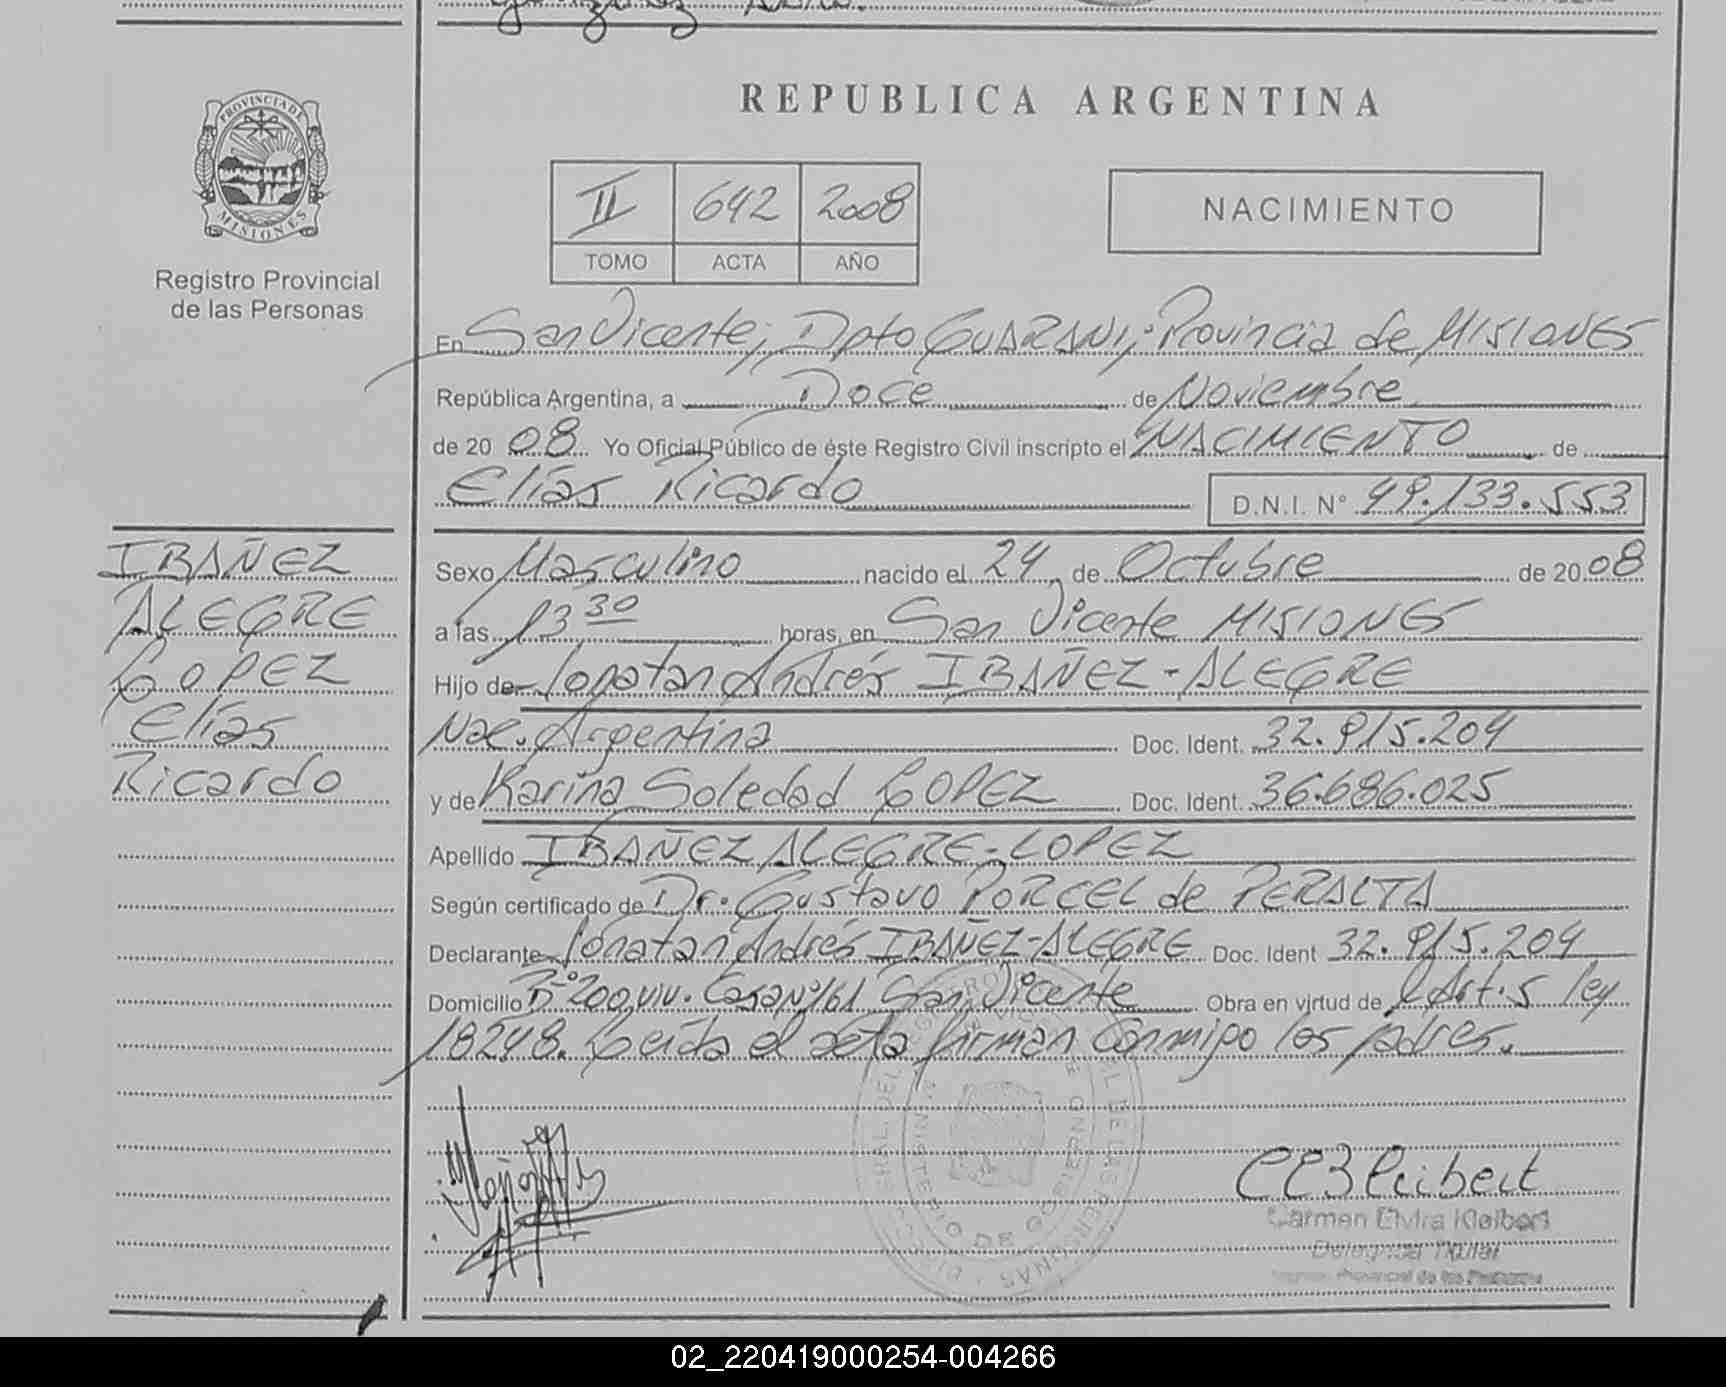 REPUBLICA ARGENTINA
PROVINCIA DE MISIONES
Registro Provincial
de las Personas
II 642 2008
TOMO ACTA AÑO
NACIMIENTO
En San Vicente, Dpto GUARANI, Provincia de MISIONES
República Argentina, a Doce de Noviembre
de 2008 Yo Oficial Público de éste Registro Civil inscripto el NACIMIENTO de
Elías Ricardo D.N.I. Nº 49.133.553
IBAÑEZ
ALEGRE
LOPEZ
Elías
Ricardo
Sexo Masculino nacido el 24 de Octubre de 2008
a las 13 30 horas, en San Vicente MISIONES
Hijo de Jonatan Andrés IBAÑEZ-ALEGRE
Nac. Argentina Doc. Ident. 32.915.204
y de Karina Soledad LOPEZ Doc. Ident. 36.686.025
Apellido IBAÑEZ ALEGRE-LOPEZ
Según certificado de Dr. Gustavo PORCEL de PERALTA
Declarante Jonatan Andrés IBAÑEZ-ALEGRE Doc. Ident 32.915.204
Domicilio Bº 200 viv. Casa Nº 161 San Vicente Obra en virtud de l Art. 5 ley
18248. Leída el acta firman conmigo los padres.
Carmen Elvira Kleibert
Delegada Titular
Registro Provincial de las Personas
02_220419000254-004266